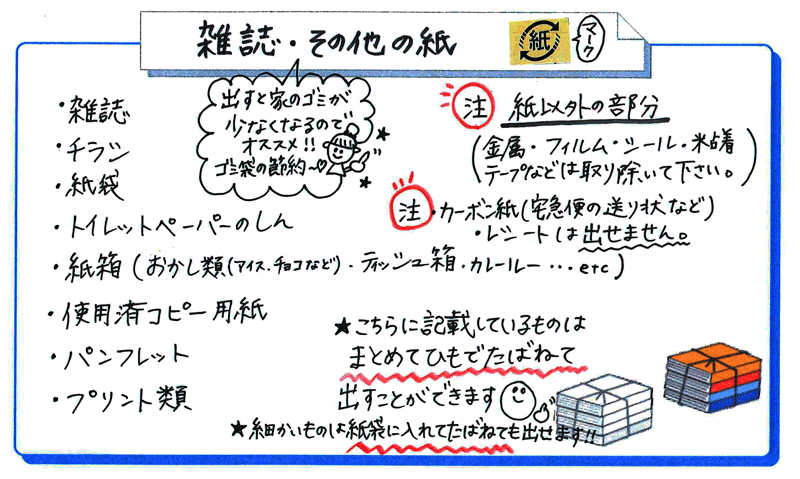 雑誌・その他の紙
紙
マーク
出すと家のゴミが
少なくなるので
オススメ!!
ゴミ袋の節約~♡
・雑誌
・チラシ
・紙袋
・トイレットペーパーのしん
・紙箱(おかし類(アイス、チョコなど)・ティッシュ箱・カレールー…etc)
・使用済コピー用紙
・パンフレット
・プリント類
注 紙以外の部分
(金属・フィルム・シール・粘着
テープなどは取り除いて下さい。)
注・カーボン紙(宅急便の送り状など)
・レシートは出せません。
★こちらに記載しているものは
まとめてひもでたばねて
出すことができます
★細かいものは紙袋に入れてたばねても出せます!!